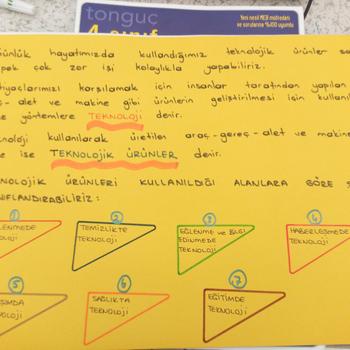 tonguç
4. sınıf
Yeni nesil MEB müfredatı
ve sorularına %100 uyumlu
ünlük hayatımızda kullandığımız teknolojik ürünler sa
pek çok zor işi kolaylıkla yapabiliriz.
tiyaçlarımızı karşılamak için insanlar tarafından yapılan
ç-alet ve makine gibi ürünlerin geliştirilmesi için kullanıl
e yöntemlere TEKNOLOJİ denir.
noloji kullanılarak üretilen araç-gereç-alet ve makine
e ise TEKNOLOJİK ÜRÜNLER denir.
NOLOJİK ÜRÜNLERİ KULLANILDIĞI ALANLARA GÖRE Ş
IFLANDIRABİLİRİZ:
1 2 3 4
LENMEDE
OLOJİ
TEMİZLİKTE
TEKNOLOJİ
EĞLENME ve BİLGİ
EDİNMEDE
TEKNOLOJİ
HABERLEŞMEDE
TEKNOLOJİ
5 6 7
AŞIMDA
OLOJİ
SAĞLIKTA
TEKNOLOJİ
EĞİTİMDE
TEKNOLOJİ